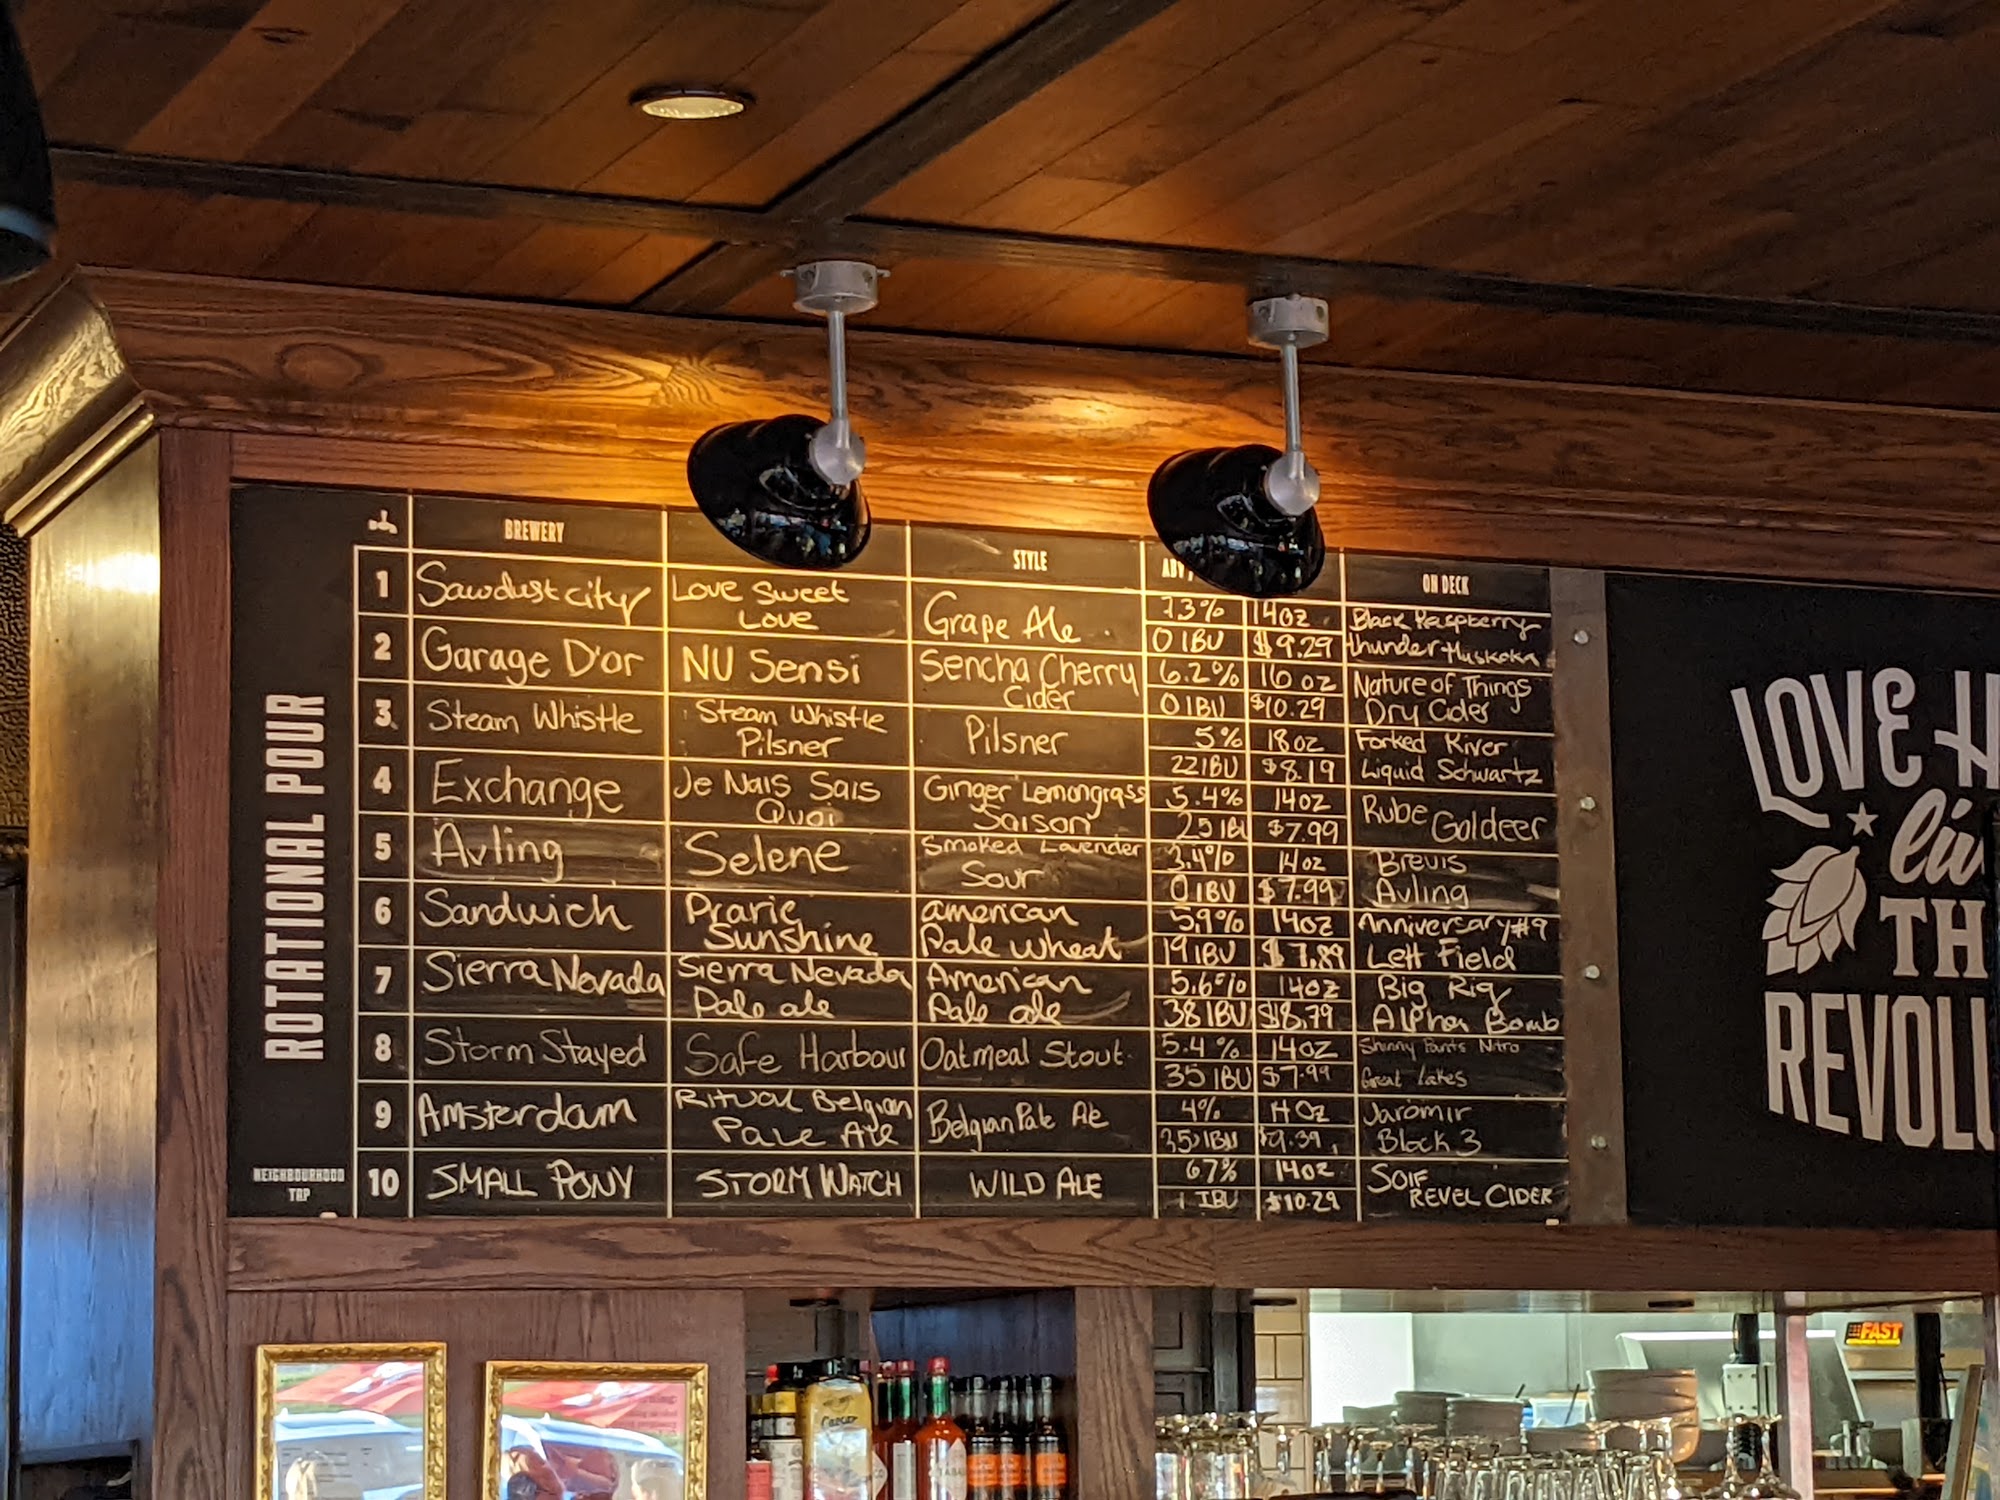 BREWERY STYLE ABV ON DECK
ROTATIONAL POUR
1 Sawdust city Love Sweet Grape Ale 14oz Black Raspberry
Love 0 IBU $9.29 thunder Muskoka
2 Garage D'or NU Sensi Sencha Cherry 6.2% 16 oz Nature of Things
Cider 0 IBU $10.29 Dry Cider
3 Steam Whistle Steam Whistle Pilsner 5% 18oz Forked River
Pilsner 22IBU $8.19 Liquid Schwartz
4 Exchange Je Nais Sais Ginger Lemongrass 5.4% 14oz Rube Goldeer
Quoi Saison 25 IBU $7.99
5 Avling Selene Smoked Lavender 3.4% 14oz Brevis
Sour 0 IBU $7.99 Avling
6 Sandwich Prarie american 5.9% 14oz Anniversary #9
Sunshine Pale Wheat 19 IBU $7.89 Left Field
7 Sierra Nevada Sierra Nevada American 5.6% 14oz Big Rig
Pale ale Pale ale 38 IBU $8.79 Alpha Bomb
8 Storm Stayed Safe Harbour Oatmeal Stout 5.4% 14oz Shinny Pants Nitro
35 IBU $7.99 Great Lakes
9 Amsterdam Ritual Belgian Belgian Pale Ale 4% 14oz Jaromir
Pale Ale 35 IBU $9.39 Block 3
NEIGHBOURHOOD
TAP
10 SMALL PONY STORM WATCH WILD ALE 6.7% 14oz SOIF
1 IBU $10.29 REVEL CIDER
LOVE
TH
REVOLU
FAST
Caesar